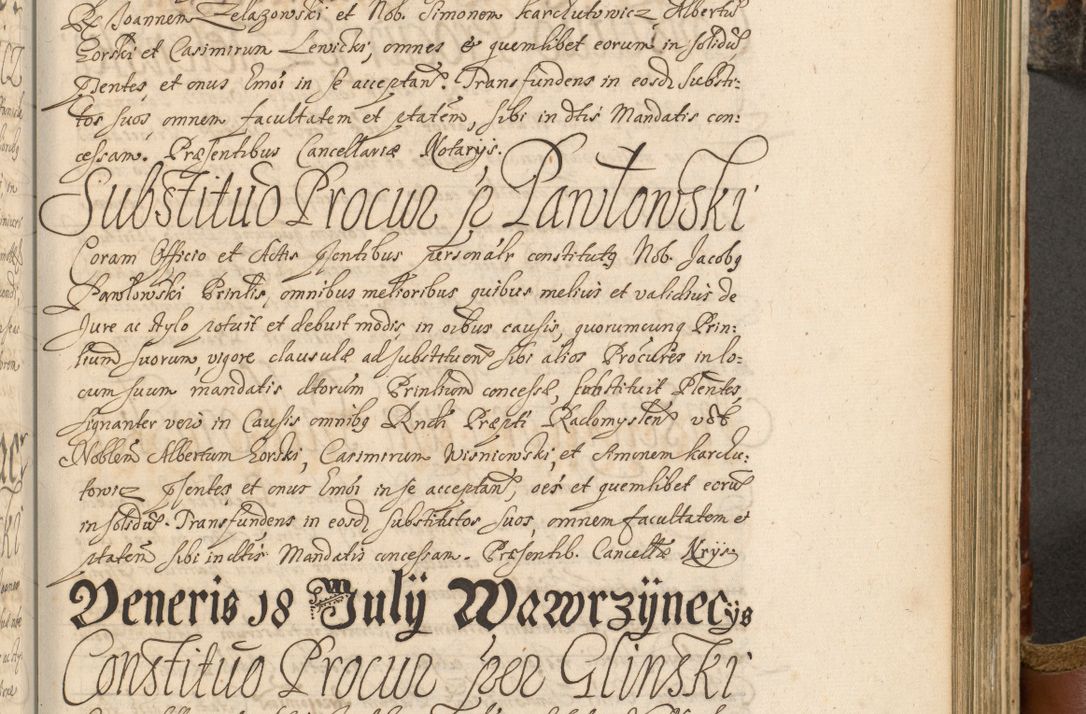 Joannem Zelazowski et Nob. Simonem Karclutowicz Albertū
Gorski et Casimirum Lewicki, omnes & quemlibet eorum in solidū
Pſentes, et onus hm̄oi in se acceptan̄. Transfundens in eosd. Substi:
tos suos, omnem facultatem et ptatēm, sibi in dtis Mandatis con:
cessam. Præsentibus Cancellariæ Notarys.
Substituo Procur p Pawłowski
Coram Officio et Actis pſentibus personalr constitutq Nob. Jacobq
Pawłowski Prinlis, omnibus melioribus quibus melius et validius de
Jure ac stylo potuit et debuit modis, in oībus causis, quorumcunq Prin:
lium suorum, vigore clausulæ ad substituen̄ sibi alios Procures in lo:
cum suum mandatis dtorum Prinlium concessæ, substituit Pſentes,
signanter vero in Causis omnibq Rndi Præpti Radomyslen̄
Noblem Albertum Gorski, Casimirum Wisniowski, et Simonem Karclu:
towicz pſentes, et onus hm̄oi in se acceptan̄, oēs et quemlibet eorū
in solidū. Transfundens in eosd. substitutos suos, omnem facultatem &
ptatem sibi in dtis Mandatis concessam. Præsentib. Cancellæ Nrys.
Veneris 18 Julij Wawrzÿnecys
Constituo Procur per Glinski